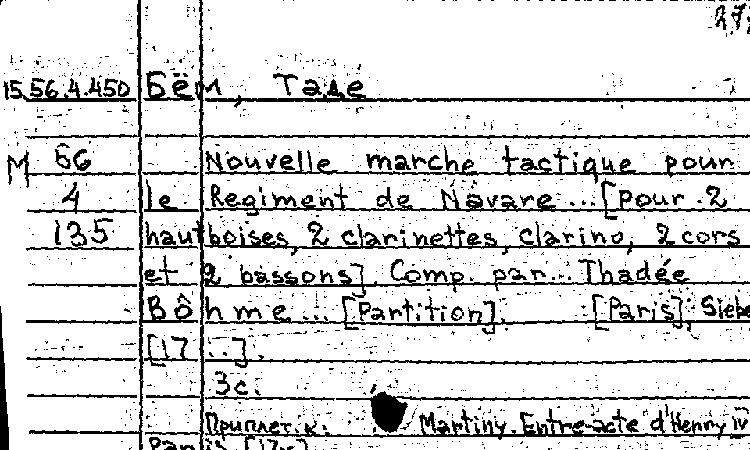 27
15.56.4.450 Бём, Таде
М 66 Nouvelle marche tactique pour
4 le Regiment de Navare ... [pour 2
135 hautboises, 2 clarinettes, clarino, 2 cors
et 2 bassons]. Comp. par... Thadée
Böhme ... [Partition]. [Paris], Siebe
[17 ..].
3c.
Приплет. к: Martiny. Entre-acte d'Henry IV
Paris [17..]